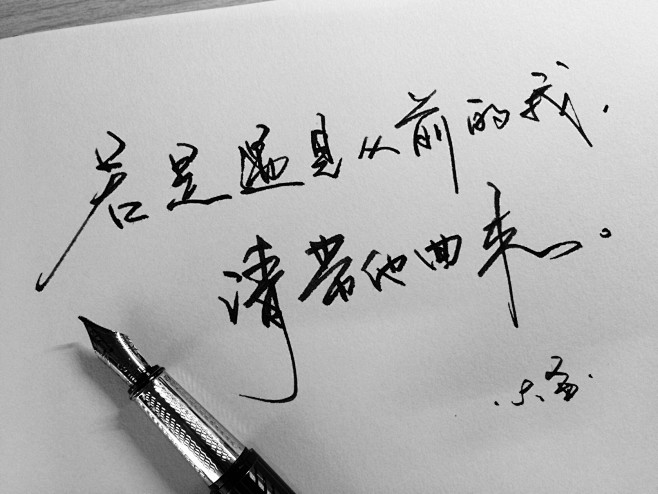 若是遇见从前的我，
请带他回来。